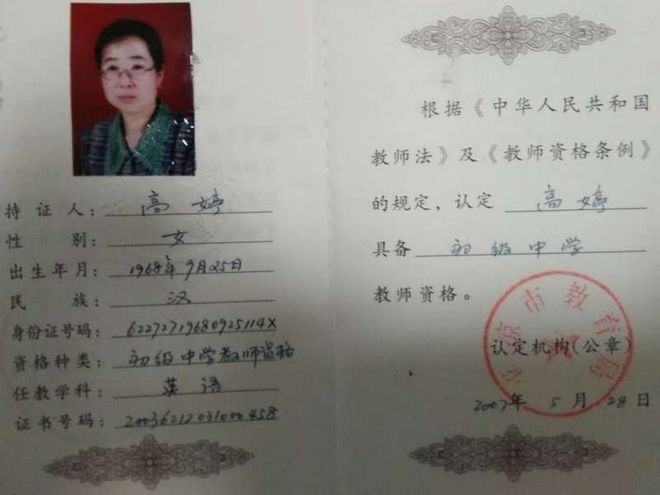 持证人：高婷
性别：女
出生年月：1968年9月25日
民族：汉
身份证号码：62272719680925114X
资格种类：初级中学教师资格
任教学科：英语
证书号码：20036212031000458
根据《中华人民共和国
教师法》及《教师资格条例》
的规定，认定 高婷
具备 初级中学
教师资格。
市教育局
认定机构(公章)
2007年 5月28日